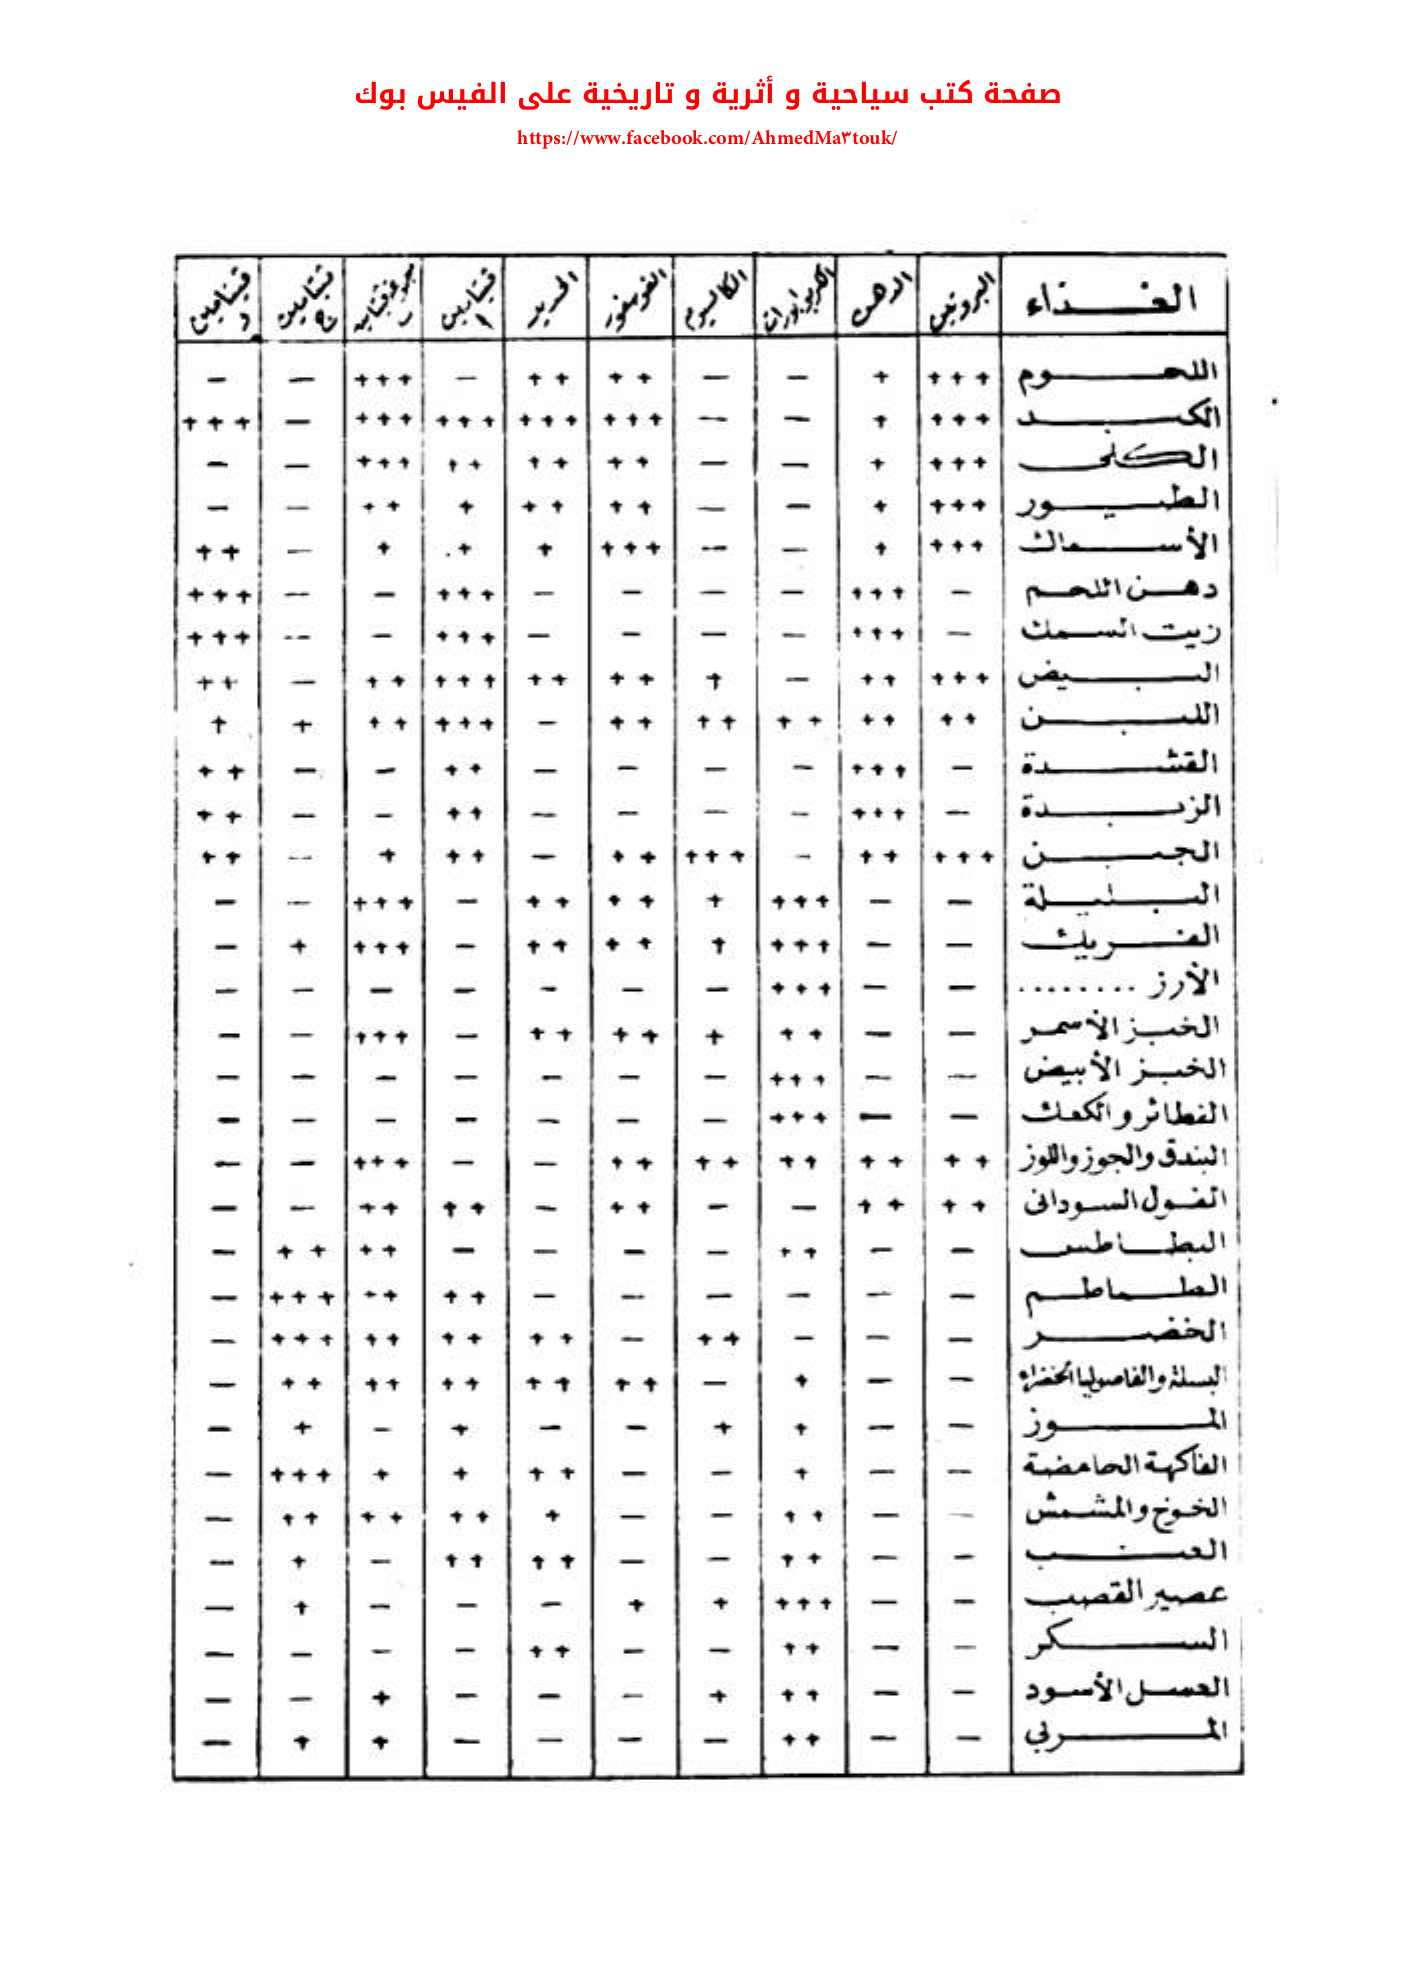 صفحة كتب سياحية و أثرية و تاريخية على الفيس بوك
https://www.facebook.com/AhmedMa٣touk/
الغذاء البروتين الدهن الكربوايدرات الكالسيوم الفوسفور الحديد ڤيتامين ا مجموعة ڤيتامين ب ڤيتامين ج ڤيتامين د
اللحوم +++ + – – ++ ++ – +++ – –
الكبد +++ + – – +++ +++ +++ +++ – +++
الكلى +++ + – – ++ ++ ++ +++ – –
الطيور +++ + – – ++ ++ + ++ – –
الأسماك +++ + – – +++ + + + – ++
دهن اللحم – +++ – – – – +++ – – +++
زيت السمك – +++ – – – – +++ – – +++
البيض +++ ++ – + ++ ++ +++ ++ – ++
اللبن ++ ++ ++ ++ ++ – +++ ++ + +
القشدة – +++ – – – – ++ – – ++
الزبدة – +++ – – – – ++ – – ++
الجبن +++ ++ – +++ ++ – ++ + – ++
البليلة – – +++ + ++ ++ – +++ – –
الفريك – – +++ + ++ ++ – +++ + –
الأرز ........ – – +++ – – – – – – –
الخبز الأسمر – – ++ + ++ ++ – +++ – –
الخبز الأبيض – – +++ – – – – – – –
الفطائر والكعك – – +++ – – – – – – –
البندق والجوز واللوز ++ ++ ++ ++ ++ – – +++ – –
الفول السودانى ++ ++ – – ++ – ++ ++ – –
البطاطس – – ++ – – – – ++ ++ –
الطماطم – – – – – – ++ ++ +++ –
الخضر – – – ++ – ++ ++ ++ +++ –
البسلة والفاصوليا الخضراء – – + – ++ ++ ++ ++ ++ –
الموز – – + + – – + – + –
الفاكهة الحامضة – – + – – ++ + + +++ –
الخوخ والمشمش – – ++ – – + ++ ++ ++ –
العنب – – ++ – – ++ ++ – + –
عصير القصب – – +++ + + – – – + –
السكر – – ++ – – ++ – – – –
العسل الأسود – – ++ + – – – + – –
المربى – – ++ – – – – + + –